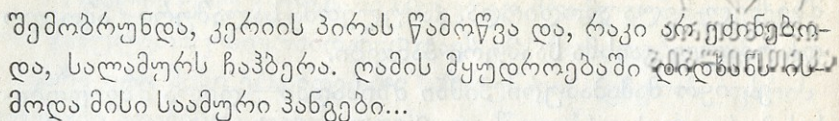 შემობრუნდა, კერიის პირას წამოწვა და, რაკი არ ეძინებო-
და, სალამურს ჩაჰბერა. ღამის მყუდროებაში დიდხანს ის-
მოდა მისი საამური ჰანგები...